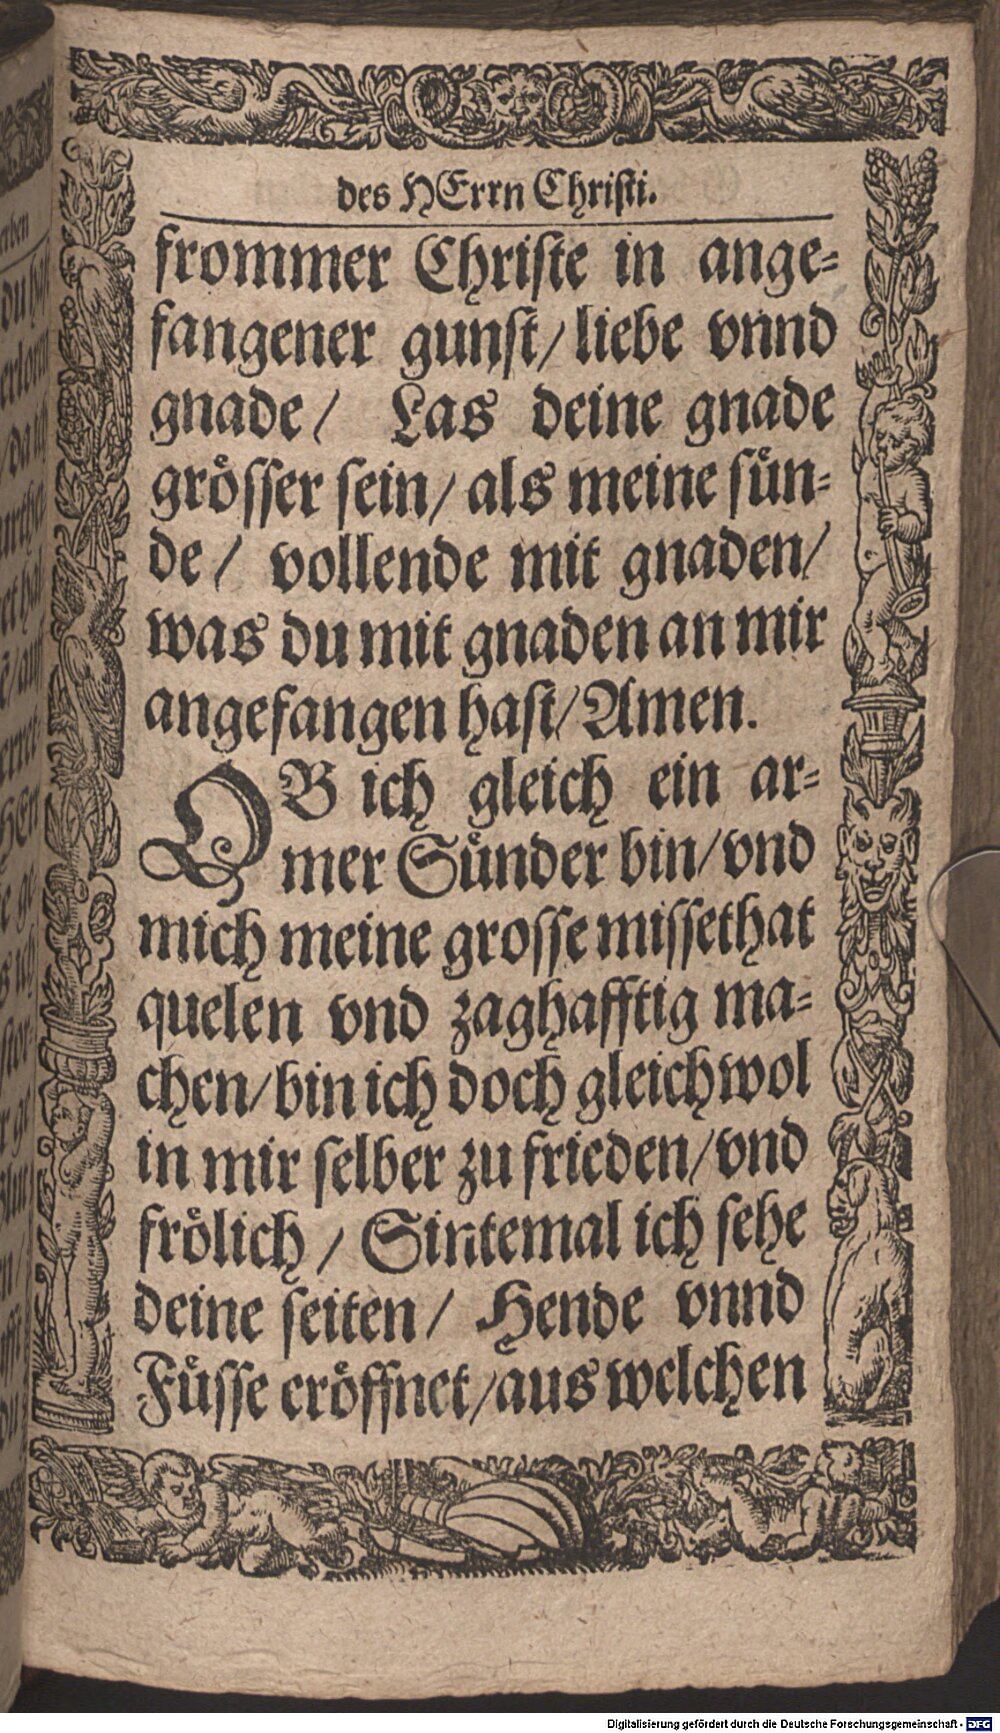 des HErrn Christi.
frommer Christe in ange-
fangener gunst/ liebe vnnd
gnade/ Las deine gnade
grösser sein/ als meine sün-
de/ vollende mit gnaden/
was du mit gnaden an mir
angefangen hast/ Amen.
OB ich gleich ein ar-
mer Sünder bin/ vnd
mich meine grosse missethat
quelen vnd zaghafftig ma-
chen/ bin ich doch gleichwol
in mir selber zu frieden/ vnd
frölich/ Sintemal ich sehe
deine seiten/ Hende vnnd
Füsse eröffnet/ aus welchen
Digitalisierung gefördert durch die Deutsche Forschungsgemeinschaft - DFG